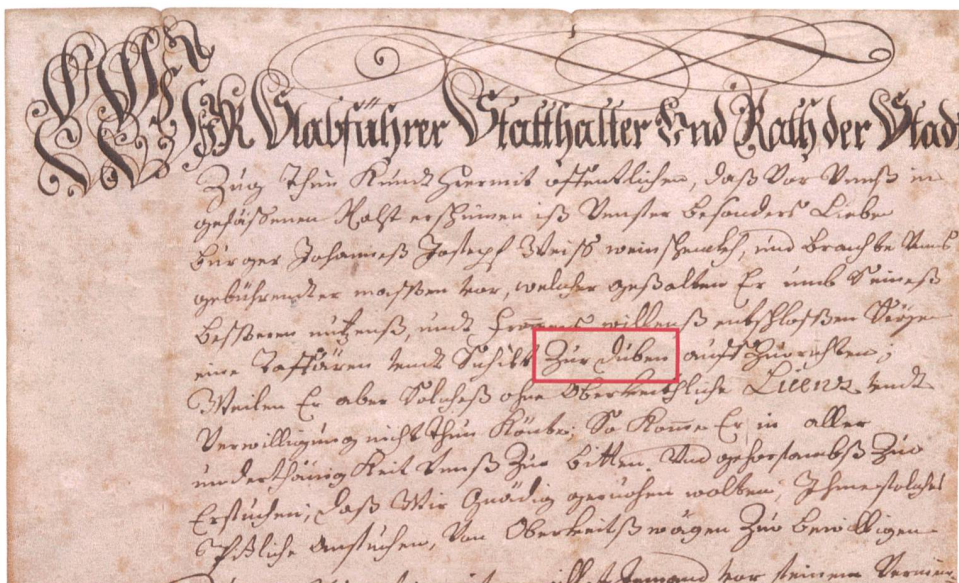 WIR Stabführer Statthalter Und Rath der Stadt
Zug Thun Kundt hiermit offentlichen, daß Vor Unnß in
gesässenen Raht erschinen iß Unnser besonders Liebe
burger Johanneß Joseph Weiss weinschenckh, und brachte Unnß
gebührendter massen vor, welcher gestalten Er umb Seineß
besseren nutzenß, undt willenß entschlossen Seÿe
eine Taffären undt Schilt Zur duben auffZurichten,
Weilen Er aber Solcheß ohne Oberkeithliche Licenz undt
Verwilligung nicht thun Könte; So Komme Er in aller
underthänigKeit Unnß Zuo bitten Und gehorsambß Zuo
Ersuchen, daß Wir Gnädig geruohen wolten, Ihme solches
Ansuchen, Von Oberkeitß wägen Zuo bewilligen